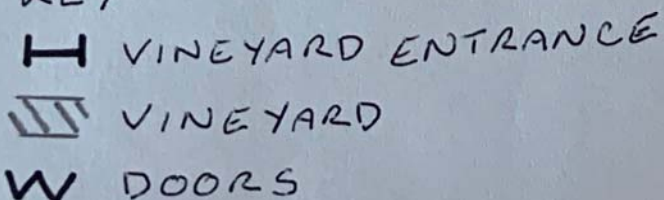 VINEYARD ENTRANCE
VINEYARD
DOORS